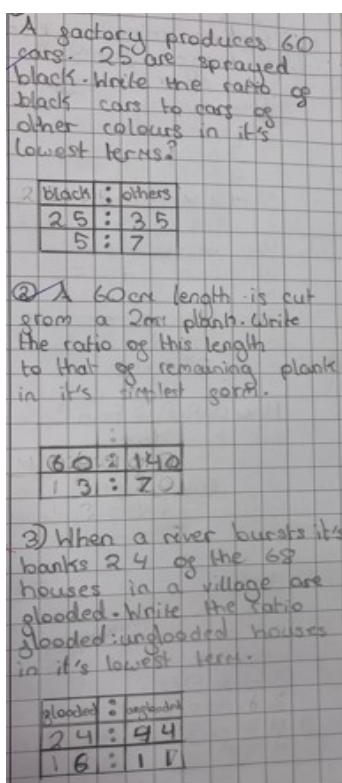 A gactory produces 60
cars. 25 are sprayed
black. Write the ratio og
black cars to cars og
other colours in it's
lowest terms?
black : others
25 : 35
5 : 7
② A 60cm length is cut
grom a 2m plank. Write
the ratio og this length
to that og remaining plank
in it's simplest gorm.
60 : 140
3 : 7
3) When a river bursts it's
banks 24 og the 68
houses in a village are
glooded. Write the ratio
glooded : unglooded houses
in it's lowest term.
glooded : unglooded
24 : 94
6 : 11